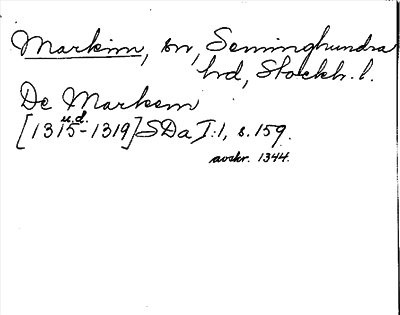 Markim, sn, Seminghundra
hd, Stockh. l.
De Markem
u.d.
[1315-1319] SDa I:1, s. 159.
avskr. 1344.